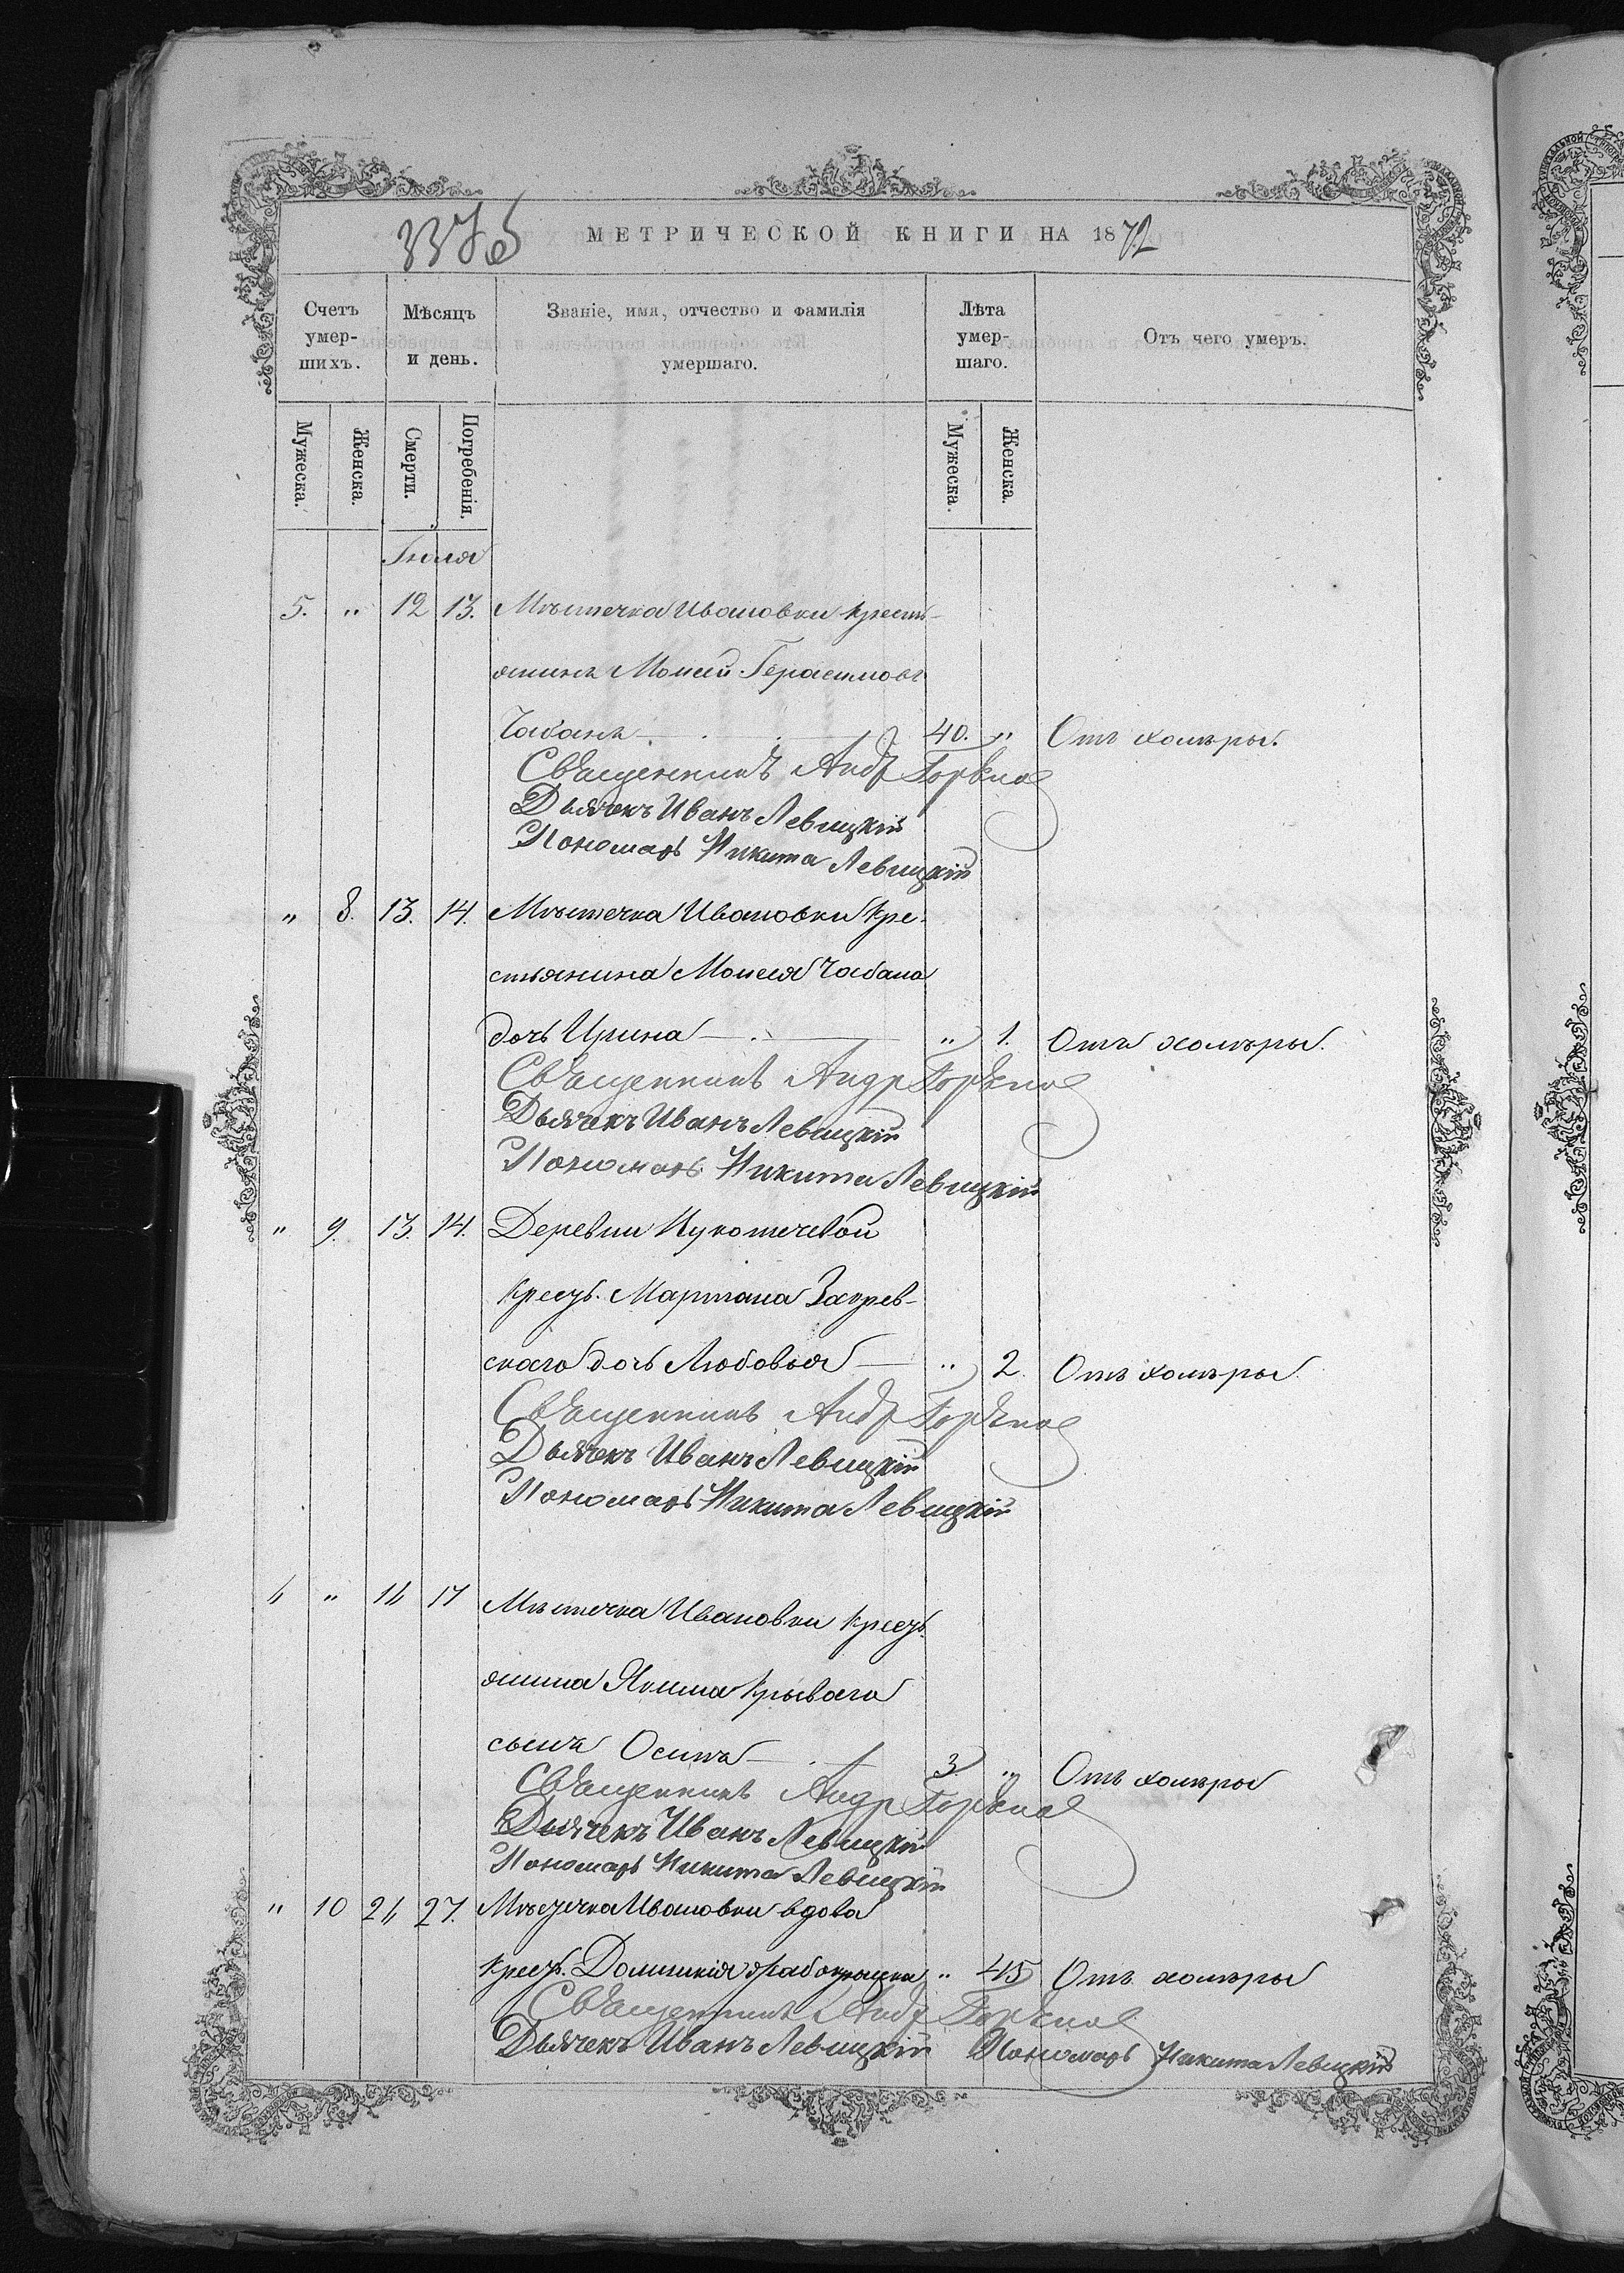 МЕТРИЧЕСКОЙ КНИГИ НА 1872
Счетъ умер-шихъ.
Мѣсяцъ и день.
Званіе, имя, отчество и фамилія умершаго.
Лѣта умер-шаго.
Отъ чего умеръ.
Мужеска.
Женска.
Смерти.
Погребенія.
Мужеска.
Женска.
Іюля
5. " 12 13. Мѣстечка Ивановки кресть-
янинъ Моисей Герасимовъ
Чабанъ 40. " Отъ холѣры.
Священникъ Андр
Дьячекъ Иванъ Левицкій
Пономарь Никита Левицкій
" 8. 13. 14. Мѣстечка Ивановки кре-
стьянина Моисея Чабана
дочь Ирина " 1. Отъ холѣры.
Священникъ Андр
Дьячекъ Иванъ Левицкій
Пономарь Никита Левицкій
" 9. 13. 14. Деревни
крест. Мартана Закрев-
скаго дочь Любовья " 2. Отъ холѣры
Священникъ Андр
Дьячекъ Иванъ Левицкій
Пономарь Никита Левицкій
6 " 16 17 Мѣстечка Ивановки крест-
янина Якима Крываго
сынъ Осипъ 3 " Отъ холѣры
Священникъ Андр
Дьячекъ Иванъ Левицкій
Пономарь Никита Левицкій
" 10 26 27. Мѣстечка Ивановки вдова
крест. Домникія " 45 Отъ холѣры
Священникъ Андр
Дьячекъ Иванъ Левицкій Пономарь Никита Левицкій